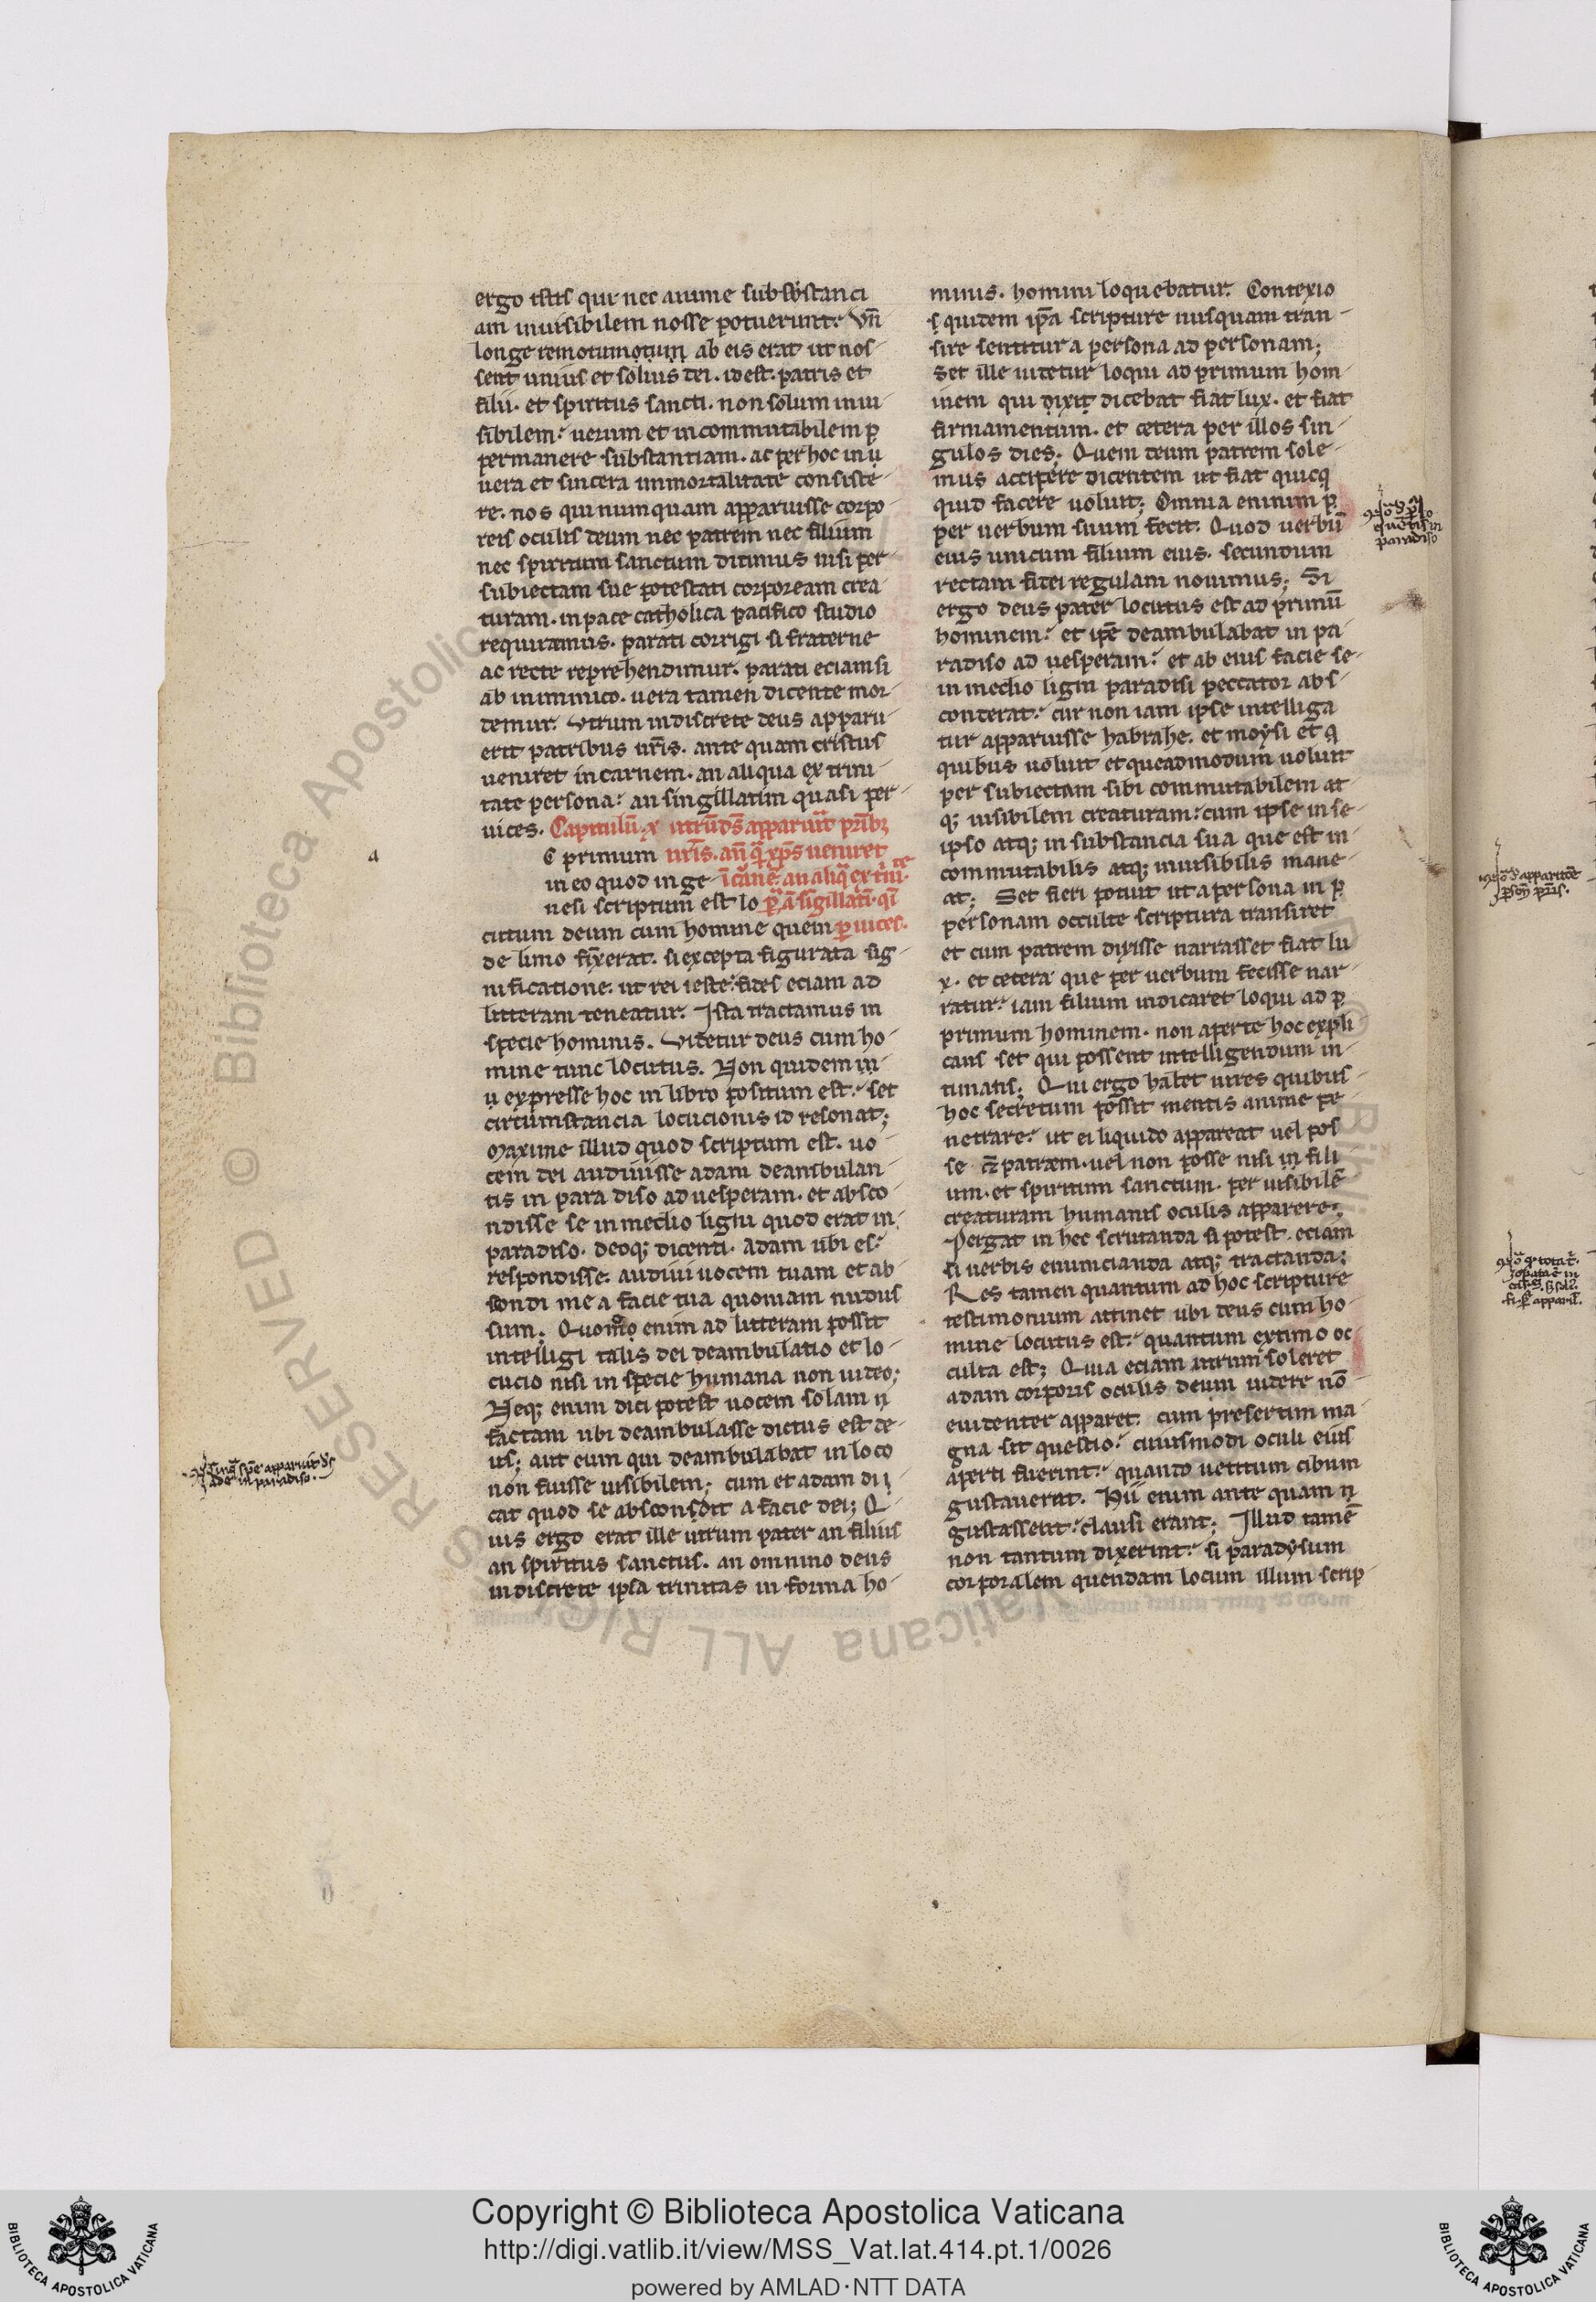 ergo istis qui nec anime subsbstanci
am inuisibilem nosse potuerunt. Vn̄
longe remotumotum ab eis erat ut nos-
sent unius et solius dei. id est. patris et
filii. et spiritus sancti. non solum inui
sibilem: uerum et incommutabilem p
permanere substantiam. ac per hoc in u
uera et sincera immortalitate consiste-
re. nos qui numquam apparuisse corpo
reis oculis deum nec patrem nec filium
nec spiritum sanctum dicimus nisi per-
subiectam sue potestati corpoream crea
turam. in pace catholica pacifico studio
requiramus. parati corrigi si fraterne
ac recte reprehendimur. parati eciam si
ab inimico. uera tamen dicente mor-
demur. Vtrum indiscrete deus apparu
erit patribus nr̄is. ante quam cristus
ueniret in carnem. an aliqua ex trini
tate persona: an singillatim quasi per-
uices. Capitulū. x utrū ds̄ apparuit pr̄ibꝫ
e primum nr̄is. an̄ qͣ xp̄s ueniret
in eo quod in ge- ī carnē. an aliqͣ ex trini-te
nesi scriptum est lo pͣ. ā sīgillatī. qͣi
cutum deum cum homine quem ꝑ uices.
de limo fixerat. si excepta figurata sig-
nificatione. ut rei ieste: fides eciam ad
litteram teneatur. Ista tractamus in
specie hominis. Videtur deus cum ho-
mine tunc locutus. Non quidem in
u expresse hoc in libro positum est. set
circumstancia locucionis id resonat;
Maxime illud quod scriptum est. uo
cem dei audiuisse adam deambulan-
tis in para diso ad uesperam. et absco-
ndisse se in medio ligni quod erat in
paradiso. deoqꝫ dicenti. Adam ubi es:
respondisse. audiui uocem tuam et ab-
scondi me a facie tua quoniam nudus
sum. Quomͦo enim ad litteram possit
intelligi talis dei deambulatio et lo-
cucio nisi in specie humana non uideo;
Neqꝫ enim dici potest uocem solam n
factam ubi deambulasse dictus est de-
us; aut eum qui deambulabat in loco
non fuisse uisibilem; cum et adam di i
cat quod se absconsdit a facie dei; Q-
uis ergo erat ille utrum pater an filius
an spiritus sanctus. an omnino deus
indiscrete ipsa trinitas in forma ho-
minis. homini loquebatur. Contexio
s quidem ip̄a scripture nusquam tran-
sire sentitur a persona ad personam;
Set ille uidetur loqui ad primum hom-
inem qui dixit dicebat fiat lux. et fiat
firmamentum. et cetera per illos sin-
gulos dies; Quem deum patrem sole-
mus accipere dicentem ut fiat quicq
quid facere uoluit; Omnia enimm p
per uerbum suum fecit. Quod uerbū
eius unicum filium eius. secundum
rectam fidei regulam nouimus; Si
ergo deus pater locutus est ad primū
hominem: et ip̄e deambulabat in pa
radiso ad uesperam: et ab eius facie se-
in medio ligni paradisi peccator abs-
conderat: cur non iam ipse intelliga
tur apparuisse habrahe. et moysi et q
quibus uoluit et queadmodum uoluit
per subiectam sibi commutabilem at
qꝫ uisibilem creaturam: cum ipse in se-
ipso atqꝫ in substancia sua que est in-
commutabilis atqꝫ inuisibilis mane-
at; Set fieri potuit ut a persona in p
personam occulte scriptura transiret
et cum patrem dixisse narrasset fiat lu
x. et cetera que per uerbum fecisse nar-
ratur: iam filium indicaret loqui ad p
primum hominem. non aperte hoc expli-
cans set qui possent intelligendum in-
timans; Qui ergo habet uires quibus-
hoc secretum possit mentis anime pe-
netrare: ut ei liquido appareat uel pos
se patrem. uel non posse nisi in fili
um. et spiritum sanctum. per uisibilē
creaturam humanis oculis apparere;
Pergat in hec scrutanda si potest. eciam
si uerbis enuncianda atqꝫ tractanda;
Res tamen quantum ad hoc scripture
testimonium attinet ubi deus cum ho-
mine locutus est: quantum extimo oc-
culta est; Quia eciam utrum soleret
adam corporis oculis deum uidere nō
euidenter apparet. cum presertim ma-
gna sit questio: cuiusmodi oculi eius
aperti fuerint: quando uetitum cibum
gustauerat. Hii enim ante quam n
gustassent: clausi erant; Illud tamē
non tantum dixerint: si paradysum
corporalem quendam locum illum scrip-
a
paradiso
Copyright © Biblioteca Apostolica Vaticana
http://digi.vatlib.it/view/MSS_Vat.lat.414.pt.1/0026
powered by AMLAD·NTT DATA
BIBLIOTECA APOSTOLICA VATICANA
BIBLIOTECA APOSTOLICA VATICANA